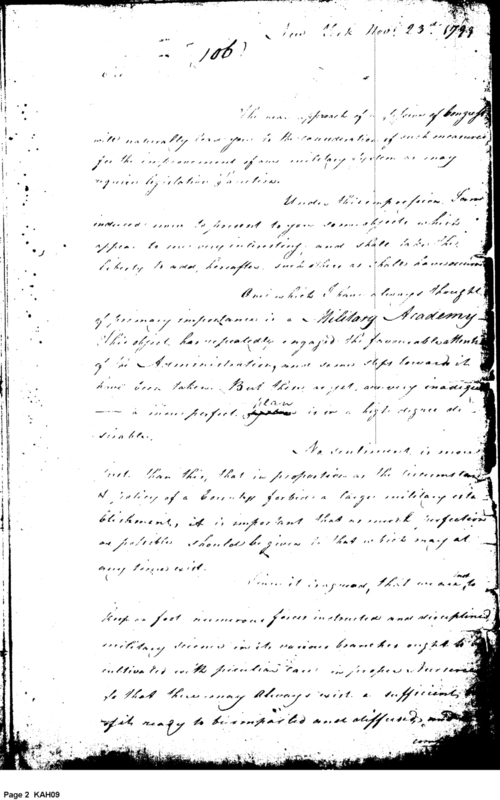 New York Nov: 23d 1799
(106)
Sir
The near approach of a session of Congress
will naturally lead you to the consideration of such measures
for the improvement of our military system as may
require legislative sanction.
Under this impression, I am
induced now to present to you some objects which
appear to me very interesting, and shall take the
liberty to add, hereafter, such others as shall have
One which I have always thought
of primary importance is a Military Academy—
This object has repeatedly engaged the favourable attention
of the Administration, and some steps towards it
have been taken. But these as yet, are very inadequate
— a more perfect plan is in a high degree de-
sirable.
No sentiment is more
just than this, that in proportion as the circumstances
& policy of a Country forbid a large military esta-
blishment, it is important that as much perfection
as possible should be given to that which may at
any time exist.
Since it is agreed, that we are not to
keep on foot numerous forces instructed and disciplined
military science in its various branches ought to be
cultivated with peculiar care in proper Nurseries
so that there may always exist a sufficient
of it ready to be imparted and diffused,
Page 2 KAH09